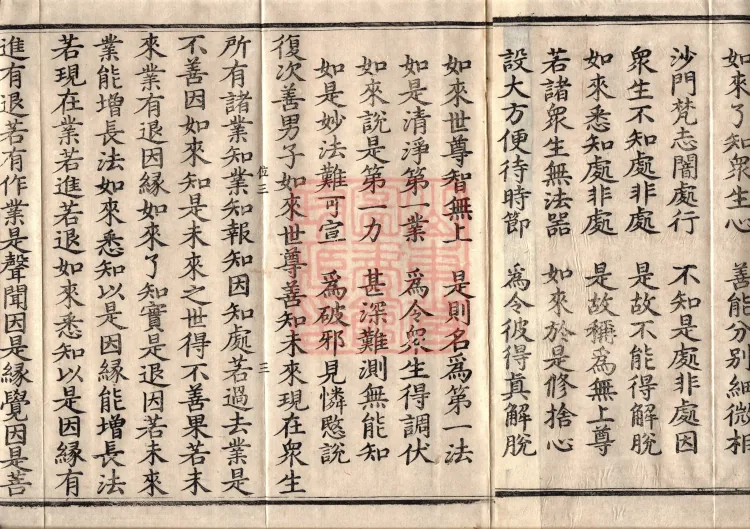 如來了知衆生心　善能分別細微相
沙門梵志闇處行　不知是處非處因
衆生不知處非處　是故不能得解脫
如來悉知處非處　是故稱爲無上尊
若諸衆生無法器　如來於是修捨心
設大方便待時節　爲令彼得真解脫
如來世尊智無上　是則名爲第一法
如是清淨第一業　爲令衆生得調伏
如來說是第一力　甚深難測無能知
如是妙法難可宣　爲破邪見憐愍說
復次善男子如來世尊善知未來現在衆生
所有諸業知業知報知因知處若過去業是
不善因如來知是未來之世得不善果若未
來業有退因緣如來了知實是退因若未來
業能增長法如來悉知以是因緣能增長法
若現在業若進若退如來悉知以是因緣有
進有退若有作業是聲聞因是緣覺因是菩
位三
三